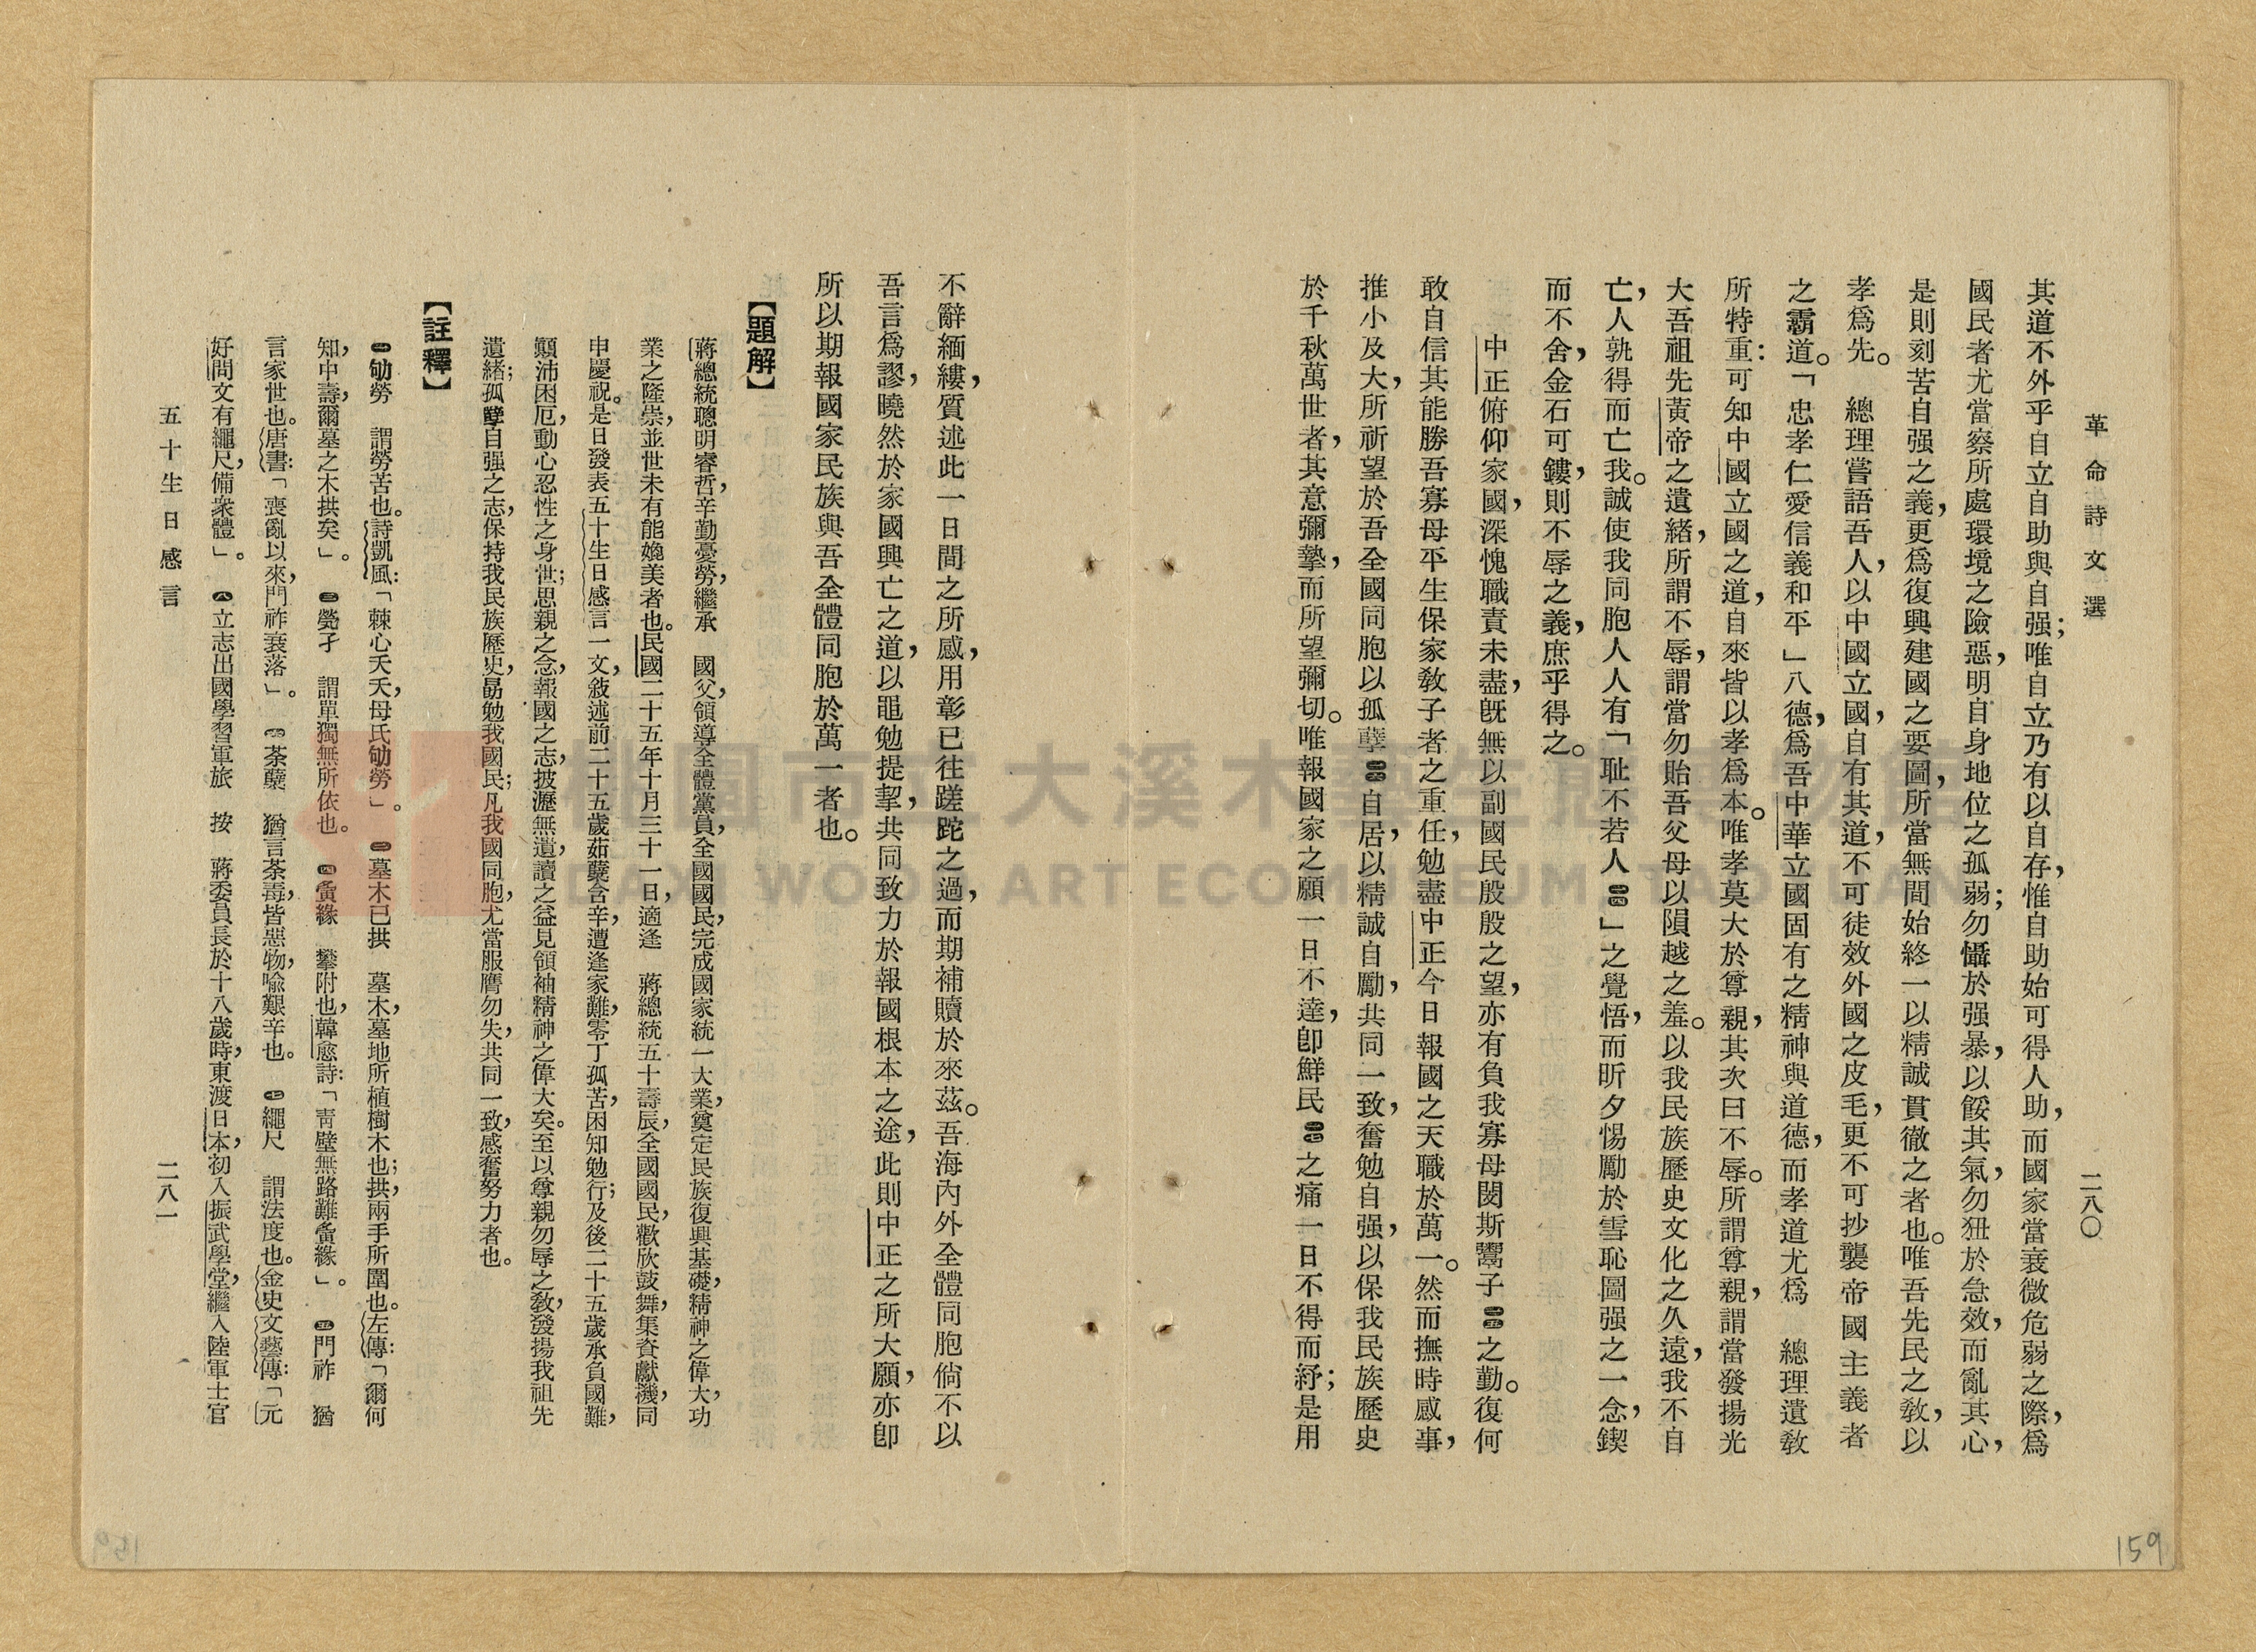 革命詩文選
二八〇
其道不外乎自立自助與自强；唯自立乃有以自存，惟自助始可得人助，而國家當衰微危弱之際，爲
國民者尤當察所處環境之險惡，明自身地位之孤弱；勿懾於强暴，以餒其氣，勿狃於急效，而亂其心，
是則刻苦自强之義，更爲復興建國之要圖，所當無間始終一以精誠貫徹之者也。唯吾先民之敎，以
孝爲先。　總理嘗語吾人，以中國立國，自有其道，不可徒效外國之皮毛，更不可抄襲帝國主義者
之霸道。「忠孝仁愛信義和平」八德，爲吾中華立國固有之精神與道德，而孝道尤爲　總理遺敎
所特重：可知中國立國之道，自來皆以孝爲本。唯孝莫大於尊親，其次曰不辱。所謂尊親，謂當發揚光
大吾祖先黃帝之遺緒，所謂不辱，謂當勿貽吾父母以隕越之羞。以我民族歷史文化之久遠，我不自
亡，人孰得而亡我。誠使我同胞人人有「耻不若人㊁㊃」之覺悟，而昕夕惕勵於雪恥圖强之一念，鍥
而不舍，金石可鏤，則不辱之義，庶乎得之。
中正俯仰家國，深愧職責未盡，旣無以副國民殷殷之望，亦有負我寡母閔斯鬻子㊁㊄之勤。復何
敢自信其能勝吾寡母平生保家敎子者之重任，勉盡中正今日報國之天職於萬一。然而撫時感事，
推小及大，所祈望於吾全國同胞以孤孽㊁㊅自居，以精誠自勵，共同一致，奮勉自强，以保我民族歷史
於千秋萬世者，其意彌摯，而所望彌切。唯報國家之願一日不達，卽鮮民㊁㊆之痛一日不得而紓；是用
不辭緬縷，質述此一日間之所感，用彰已往蹉跎之過，而期補贖於來茲。吾海內外全體同胞倘不以
吾言爲謬，曉然於家國興亡之道，以黽勉提挈，共同致力於報國根本之途，此則中正之所大願，亦卽
所以期報國家民族與吾全體同胞於萬一者也。
【題解】
蔣總統聰明睿哲，辛勤憂勞，繼承　國父，領導全體黨員，全國國民，完成國家統一大業，奠定民族復興基礎，精神之偉大，功
業之隆崇，並世未有能媲美者也。民國二十五年十月三十一日，適逢　蔣總統五十壽辰，全國國民，歡欣鼓舞，集資獻機，同
申慶祝。是日發表五十生日感言一文，敍述前二十五歲茹蘗含辛，遭逢家難，零丁孤苦，困知勉行；及後二十五歲承負國難，
顚沛困厄，動心忍性之身世；思親之念，報國之志，披瀝無遺，讀之益見領袖精神之偉大矣。至以尊親勿辱之敎，發揚我祖先
遺緒；孤孽自强之志，保持我民族歷史，勗勉我國民；凡我國同胞，尤當服膺勿失，共同一致，感奮努力者也。
【註釋】
㊀劬勞　謂勞苦也。詩凱風：「棘心夭夭，母氏劬勞」。　㊁墓木已拱　墓木，墓地所植樹木也；拱，兩手所圍也。左傳：「爾何
知，中壽，爾墓之木拱矣」。　㊂煢孑　謂單獨無所依也。　㊃夤緣　攀附也，韓愈詩：「靑壁無路難夤緣」。　㊄門祚　猶
言家世也。唐書：「喪亂以來，門祚衰落」。　㊅荼蘗　猶言荼毒，皆惡物，喩艱辛也。　㊆繩尺　謂法度也。金史文藝傳：「元
好問文有繩尺，備衆體」。　㊇立志出國學習軍旅　按　蔣委員長於十八歲時，東渡日本，初入振武學堂，繼入陸軍士官
五十生日感言
二八一
159
桃園市立大溪木藝生態博物館
DAXI WOOD ART ECOMUSEUM, TAOYUAN